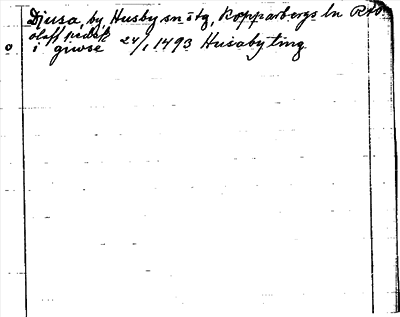 Djusa, by, Husby sn o tg, Kopparbergs ln RAp
olaff pedhk
i giwse 24/1 1493 Husaby ting